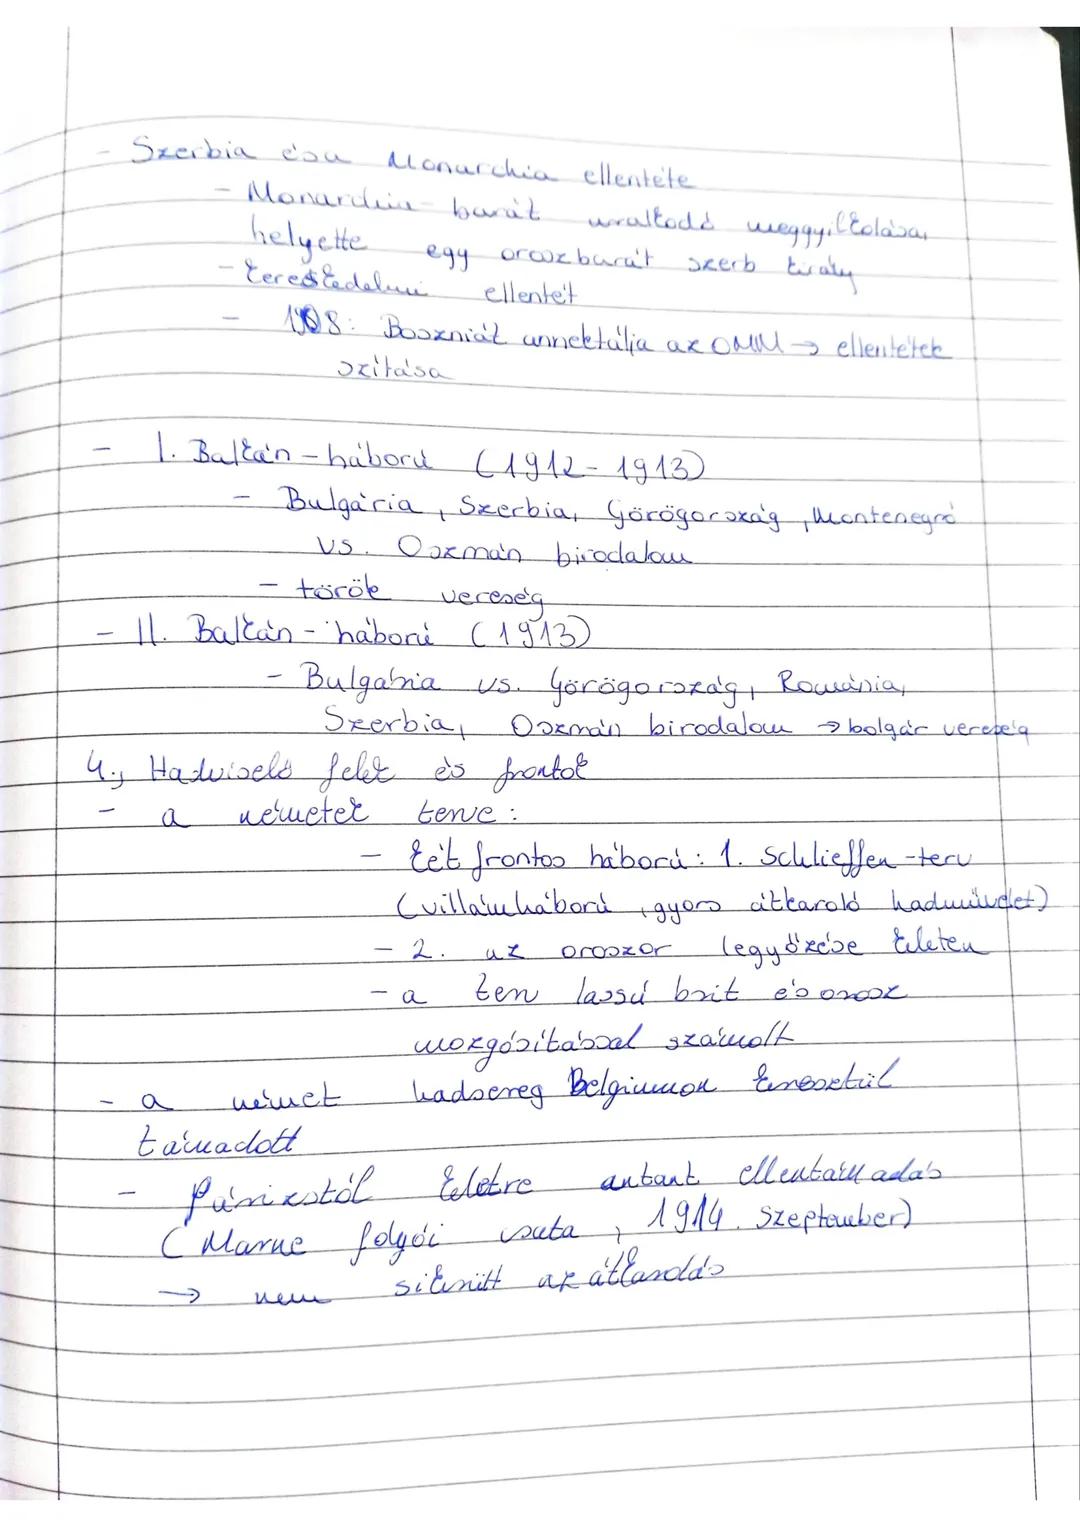 - Szerbia és a Monarchia ellentéte
- Monarchia-barát uralkodó meggyilkolása,
helyette egy oroszbarát szerb király
- kereskedelmi ellentét
- 1908: Boszniát annektálja az OMM → ellentétek
szítása
- I. Balkán-háború (1912-1913)
- Bulgária, Szerbia, Görögország, Montenegró
vs. Oszmán birodalom
- török vereség
- II. Balkán-háború (1913)
- Bulgária vs. Görögország, Románia,
Szerbia, Oszmán birodalom → bolgár vereség
4., Hadviselő felek és frontok
- a németek terve:
- két frontos háború: 1. Schlieffen-terv
(villámháború, gyors átkaroló hadművelet)
- 2. az oroszok legyőzése keleten
- a terv lassú brit és orosz
mozgósítással számolt
- a német hadsereg Belgiumon keresztül
támadott
- Párizstól keletre antant ellentámadás
(Marne folyói csata, 1914. szeptember)
→ nem sikerült az átkarolás